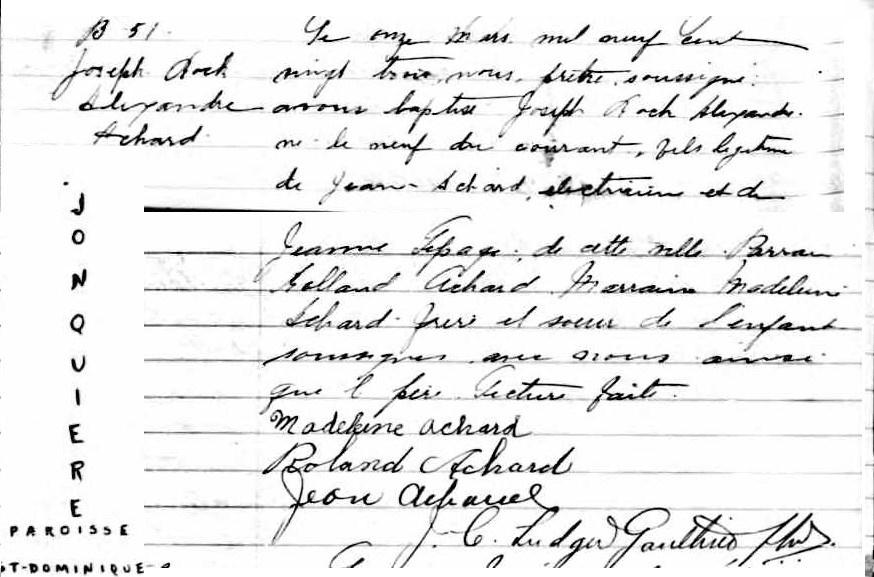 B 51.
Joseph Roch
Alexandre
Achard
Le onze Mars mil neuf cent
vingt trois, nous, prêtre soussigné
avons baptisé Joseph Roch Alexandre
né le neuf du courant, fils légitime
de Jean Achard, électricien et de
Jeanne Lepage, de cette ville. Parrain
Rolland Achard Marraine Madeleine
Achard frère et soeur de l'enfant
soussignés avec nous ainsi
que l père. Lecture faite.
Madeleine Achard
Roland Achard
Jean Achard
J. C. Ludger Gauthier
JONQUIERE
PAROISSE
T-DOMINIQUE-